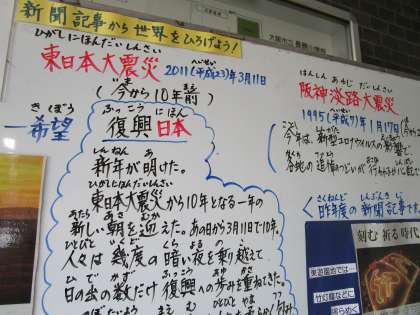 新聞記事から世界をひろげよう!
ひがしにほんだいしんさい
東日本大震災
へいせい
2011(平成23)年3月11日
いま まえ
(今から10年前)
きぼう
希望
ふっこう にほん
復興 日本
しんねん あ
新年が明けた。
ひがしにほんだいしんさい
東日本大震災から10年となる一年の
あたら あさ むか
新しい朝を迎えた。あの日から3月11日で10年。
人々は幾度の暗い夜を乗り越えて
ひ で かず ふっこう あゆ かさ
日の出の数だけ復興への歩みを重ねてきた。
はんしん あわじ だいしんさい
阪神淡路大震災
1995(平成7)年1月17日
今年は、新型コロナウイルスの影響で
各地の追悼のつどいが
さくねんど しんぶんきじ
昨年度の新聞記事です。
刻む 祈る 時代
東遊園地では
竹灯籠などに